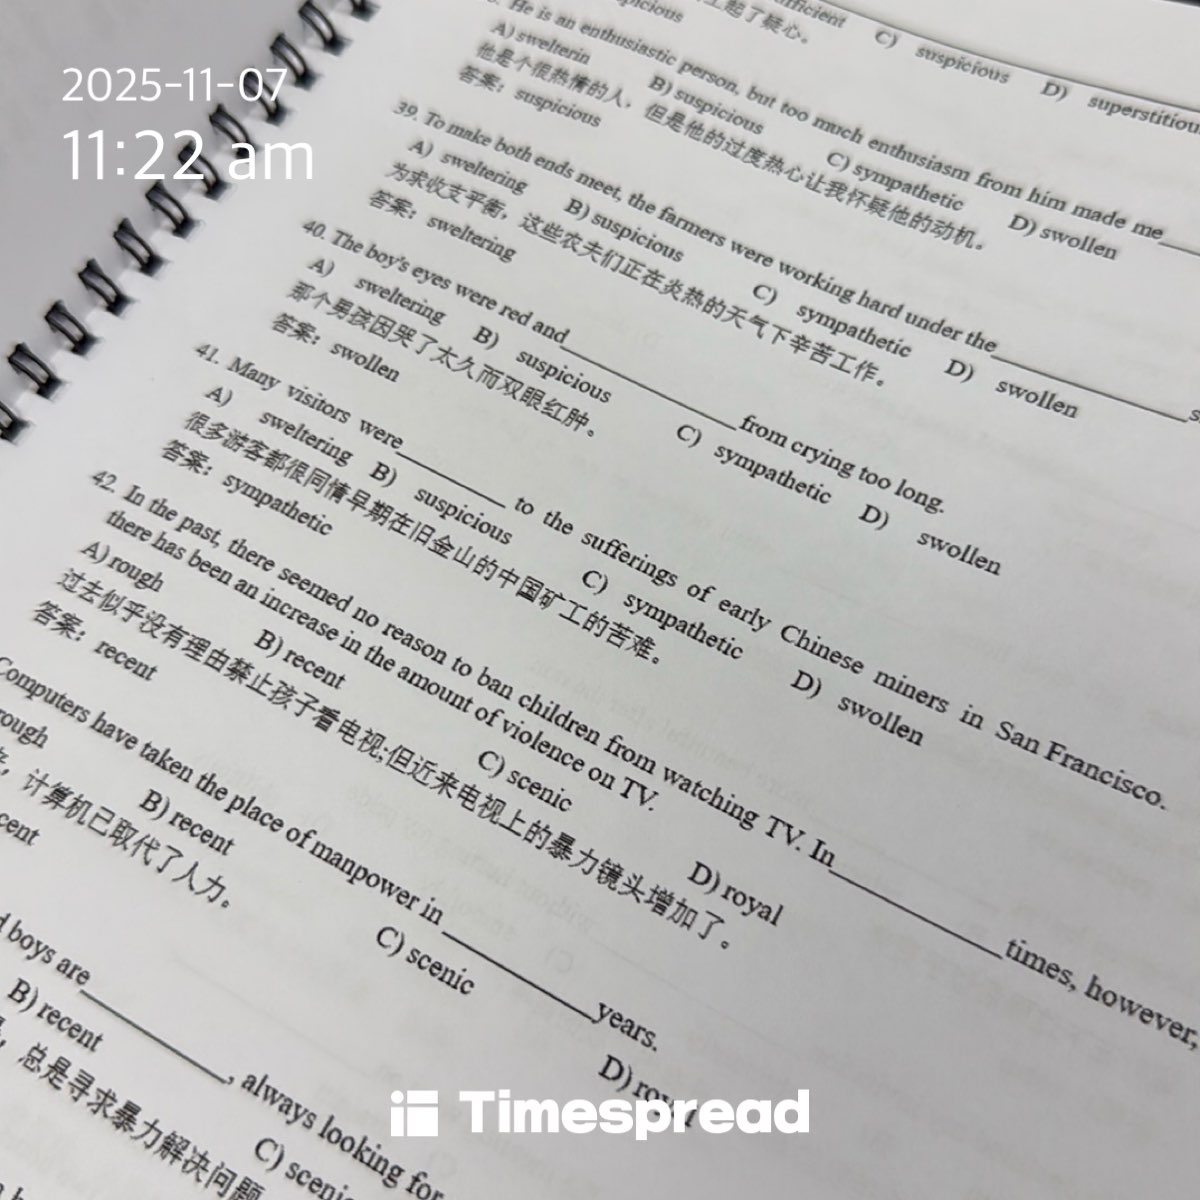 2025-11-07
11:22 am
上起了疑心。
C) suspicious D) superstitiou
He is an enthusiastic person, but too much enthusiasm from him made me
A) swelterin B) suspicious C) sympathetic D) swollen
他是个很热情的人，但是他的过度热心让我怀疑他的动机。
答案：suspicious
39. To make both ends meet, the farmers were working hard under the
A) sweltering B) suspicious C) sympathetic D) swollen
为求收支平衡，这些农夫们正在炎热的天气下辛苦工作。
答案：sweltering
40. The boy's eyes were red and__________from crying too long.
A) sweltering B) suspicious C) sympathetic D) swollen
那个男孩因哭了太久而双眼红肿。
答案：swollen
41. Many visitors were__________ to the sufferings of early Chinese miners in San Francisco.
A) sweltering B) suspicious C) sympathetic D) swollen
很多游客都很同情早期在旧金山的中国矿工的苦难。
答案：sympathetic
42. In the past, there seemed no reason to ban children from watching TV. In__________times, however,
there has been an increase in the amount of violence on TV.
A) rough B) recent C) scenic D) royal
过去似乎没有理由禁止孩子看电视;但近来电视上的暴力镜头增加了。
答案：recent
Computers have taken the place of manpower in__________years.
rough B) recent C) scenic
，计算机已取代了人力。
cent
boys are__________, always looking for
B) recent C) scenic
，总是寻求暴力解决问题
Timespread